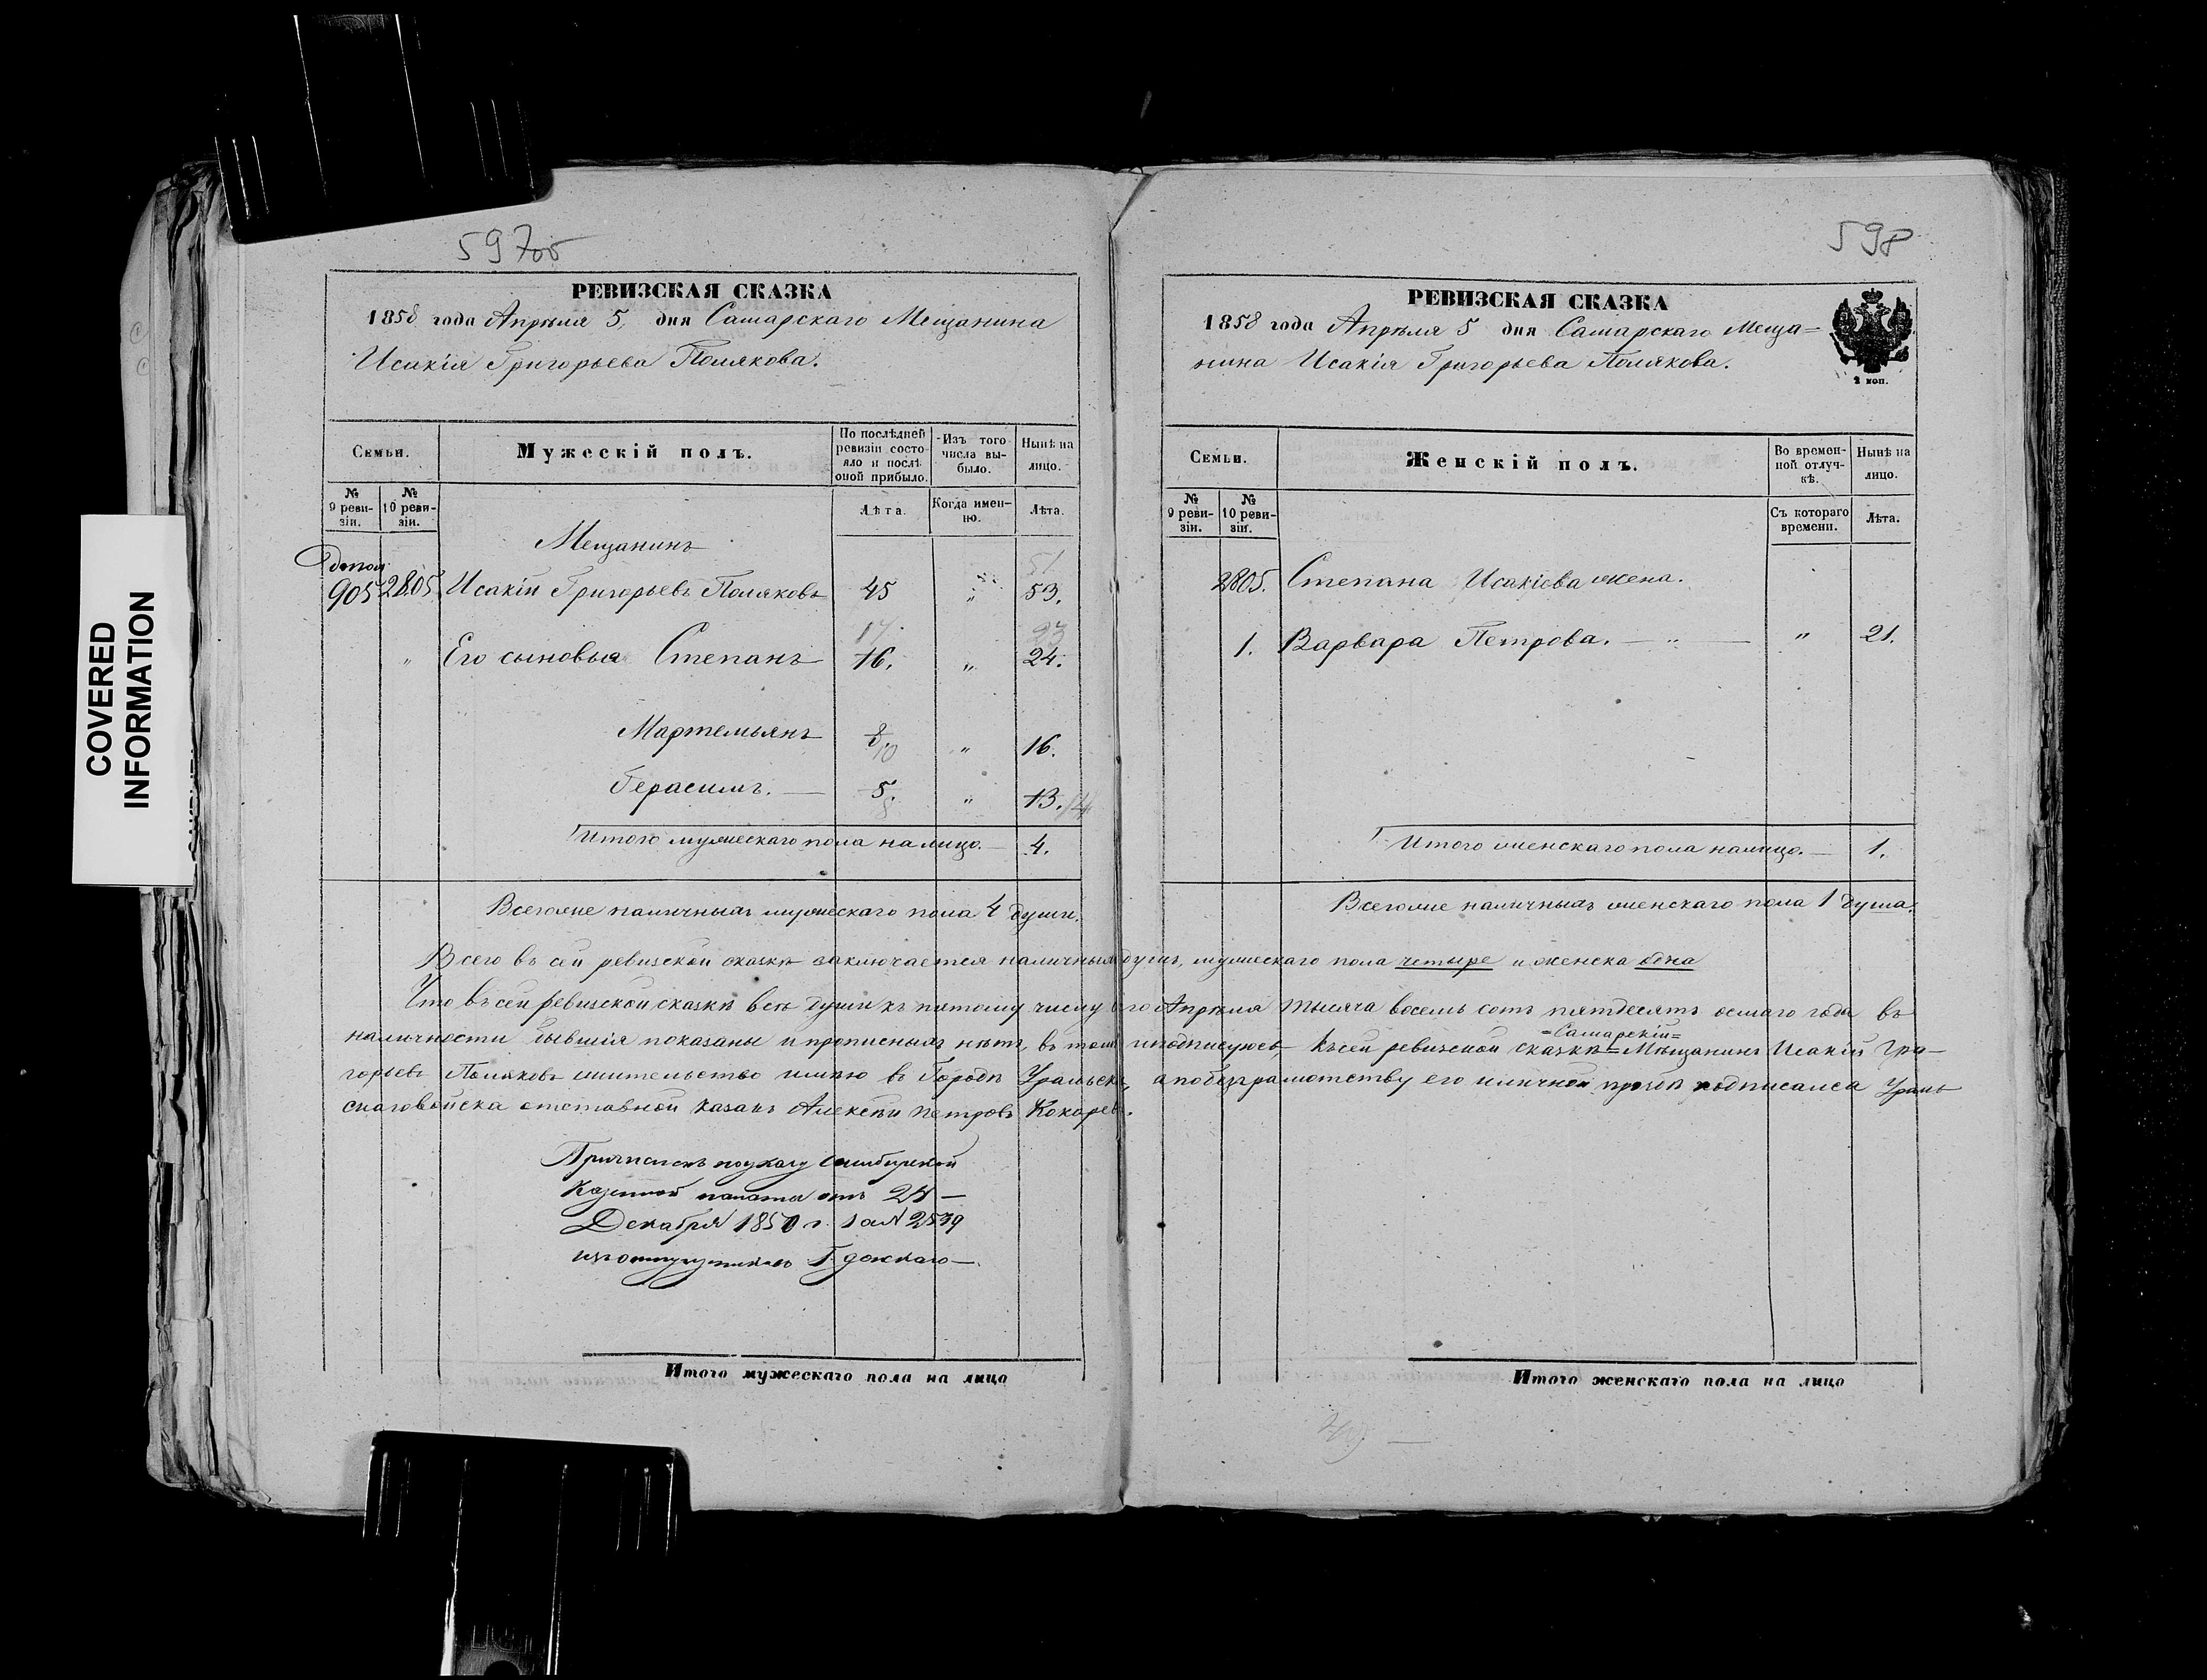 COVERED
INFORMATION
597об
РЕВИЗСКАЯ СКАЗКА
1858 года Апрѣля 5, дня Самарскаго Мещанина
Исакія Григорьева Полякова.
Семьи.
Мужескій полъ.
По послѣдней ревизіи состояло и послѣ оной прибыло.
Изъ того числа выбыло.
Нынѣ на лицо.
№ 9 ревизіи.
№ 10 ревизіи.
Лѣта.
Когда именно.
Лѣта.
Мещанинъ
допол 51
905 2805 Исакій Григорьевъ Поляковъ 45 " 53.
17. 23
" Его сыновья Степанъ 16. " 24.
Мартемьянъ 8 10 " 16.
Герасимъ. — 5. 8 " 13. 14
Итого мужескаго пола налицо. — 4.
Всего же наличныхъ мужескаго пола 4 души.
598
РЕВИЗСКАЯ СКАЗКА
1858 года Апрѣля 5 дня Самарскаго Меща=
нина Исакія Григорьева Полякова.
2 коп.
Семьи.
Женскій полъ.
Во временной отлучкѣ.
Нынѣ на лицо.
№ 9 ревизіи.
№ 10 ревизіи.
Съ котораго времени.
Лѣта.
2805. Степана Исакіева жена.
1. Варвара Петрова. — " — " 21.
Итого женскаго пола налицо. — 1.
Всего же наличныхъ женскаго пола 1 душа.
Всего въ сей ревизской сказкѣ заключается наличныхъ душъ, мужескаго пола четыре и женска одна
Что въ сей ревизской сказкѣ всѣ души къ пятому числу Апрѣля тысяча восемь сотъ пятдесятъ осмаго года въ
=Самарскій=
наличности бывшія показаны и прописныхъ нѣтъ, въ томъ и подписуюсь, — Къ сей ревизской сказкѣ= Мѣщанинъ Исакій Гри—
горьевъ Поляковъ жительство имѣю въ Городѣ Уральскѣ, а по безграмотству его и личной прозбѣ подписался Ураль
скаго войска отставной казакъ Алексѣй Петровъ Кокаревъ.
Причисленъ по указу Симбирской
Казенной палаты отъ
Декабря 1850 г. за № 2539
изъ отпущенниковъ Г.
Итого мужескаго пола на лицо
Итого женскаго пола на лицо